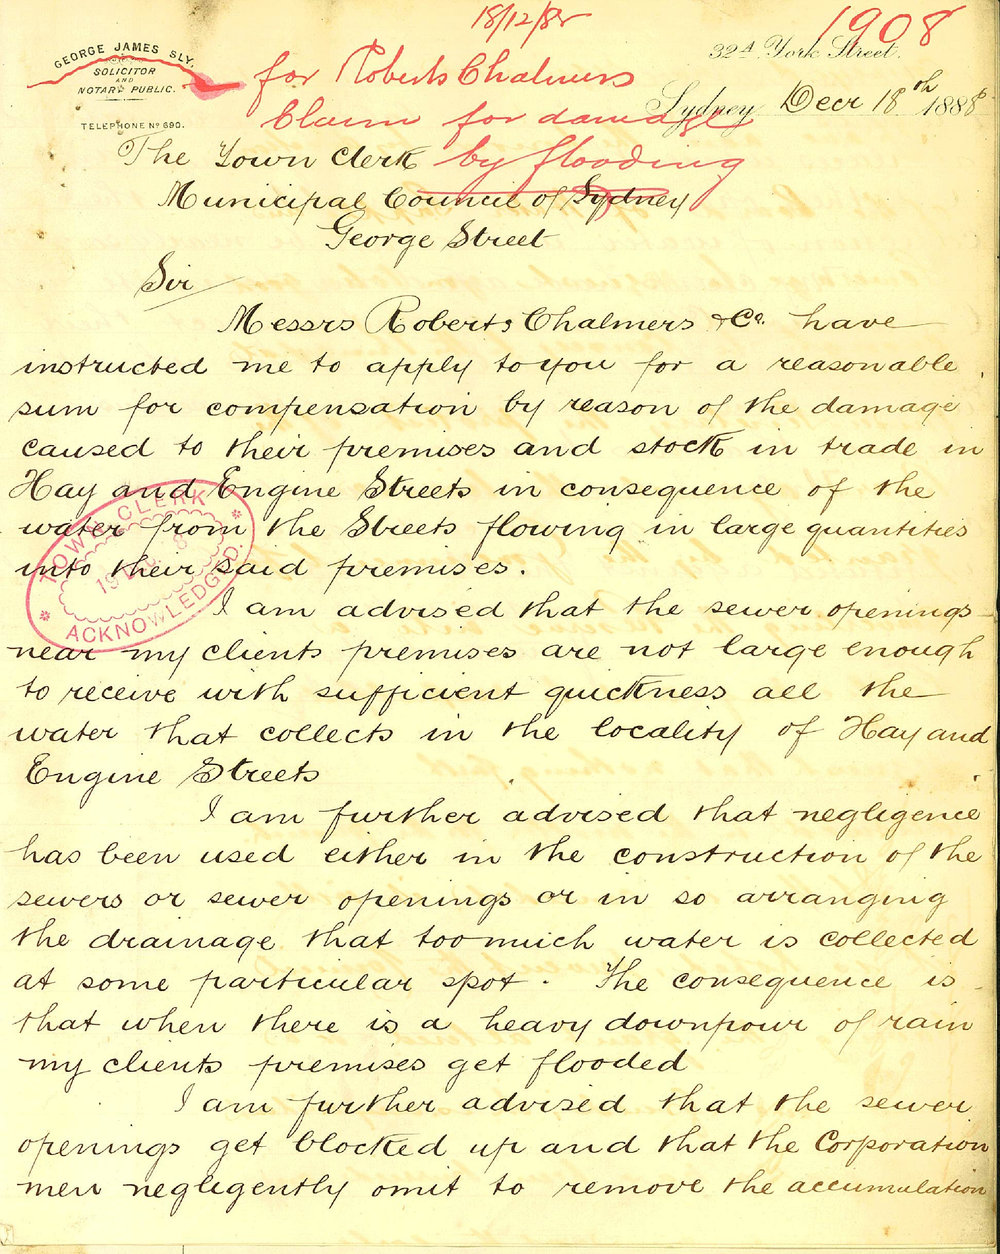 18/12/88
1908
GEORGE JAMES SLY,
SOLICITOR
AND
NOTARY PUBLIC.
TELEPHONE No 690.
32A York Street.
for Roberts Chalmers
Claim for damage
by flooding
Sydney Decr 18th 1888
The Town Clerk
Municipal Council of Sydney
George Street
Sir
Messrs Roberts Chalmers & Co. have
instructed me to apply to you for a reasonable
sum for compensation by reason of the damage
caused to their premises and stock in trade in
Hay and Engine Streets in consequence of the
water from the Streets flowing in large quantities
into their said premises.
TOWN CLERK
19 DEC 88
ACKNOWLEDGED.
I am advised that the sewer openings
near my clients premises are not large enough
to receive with sufficient quickness all the
water that collects in the locality of Hay and
Engine Streets
I am further advised that negligence
has been used either in the construction of the
sewers or sewer openings or in so arranging
the drainage that too much water is collected
at some particular spot. The consequence is
that when there is a heavy downpour of rain
my clients premises get flooded
I am further advised that the sewer
openings get blocked up and that the Corporation
men negligently omit to remove the accumulation